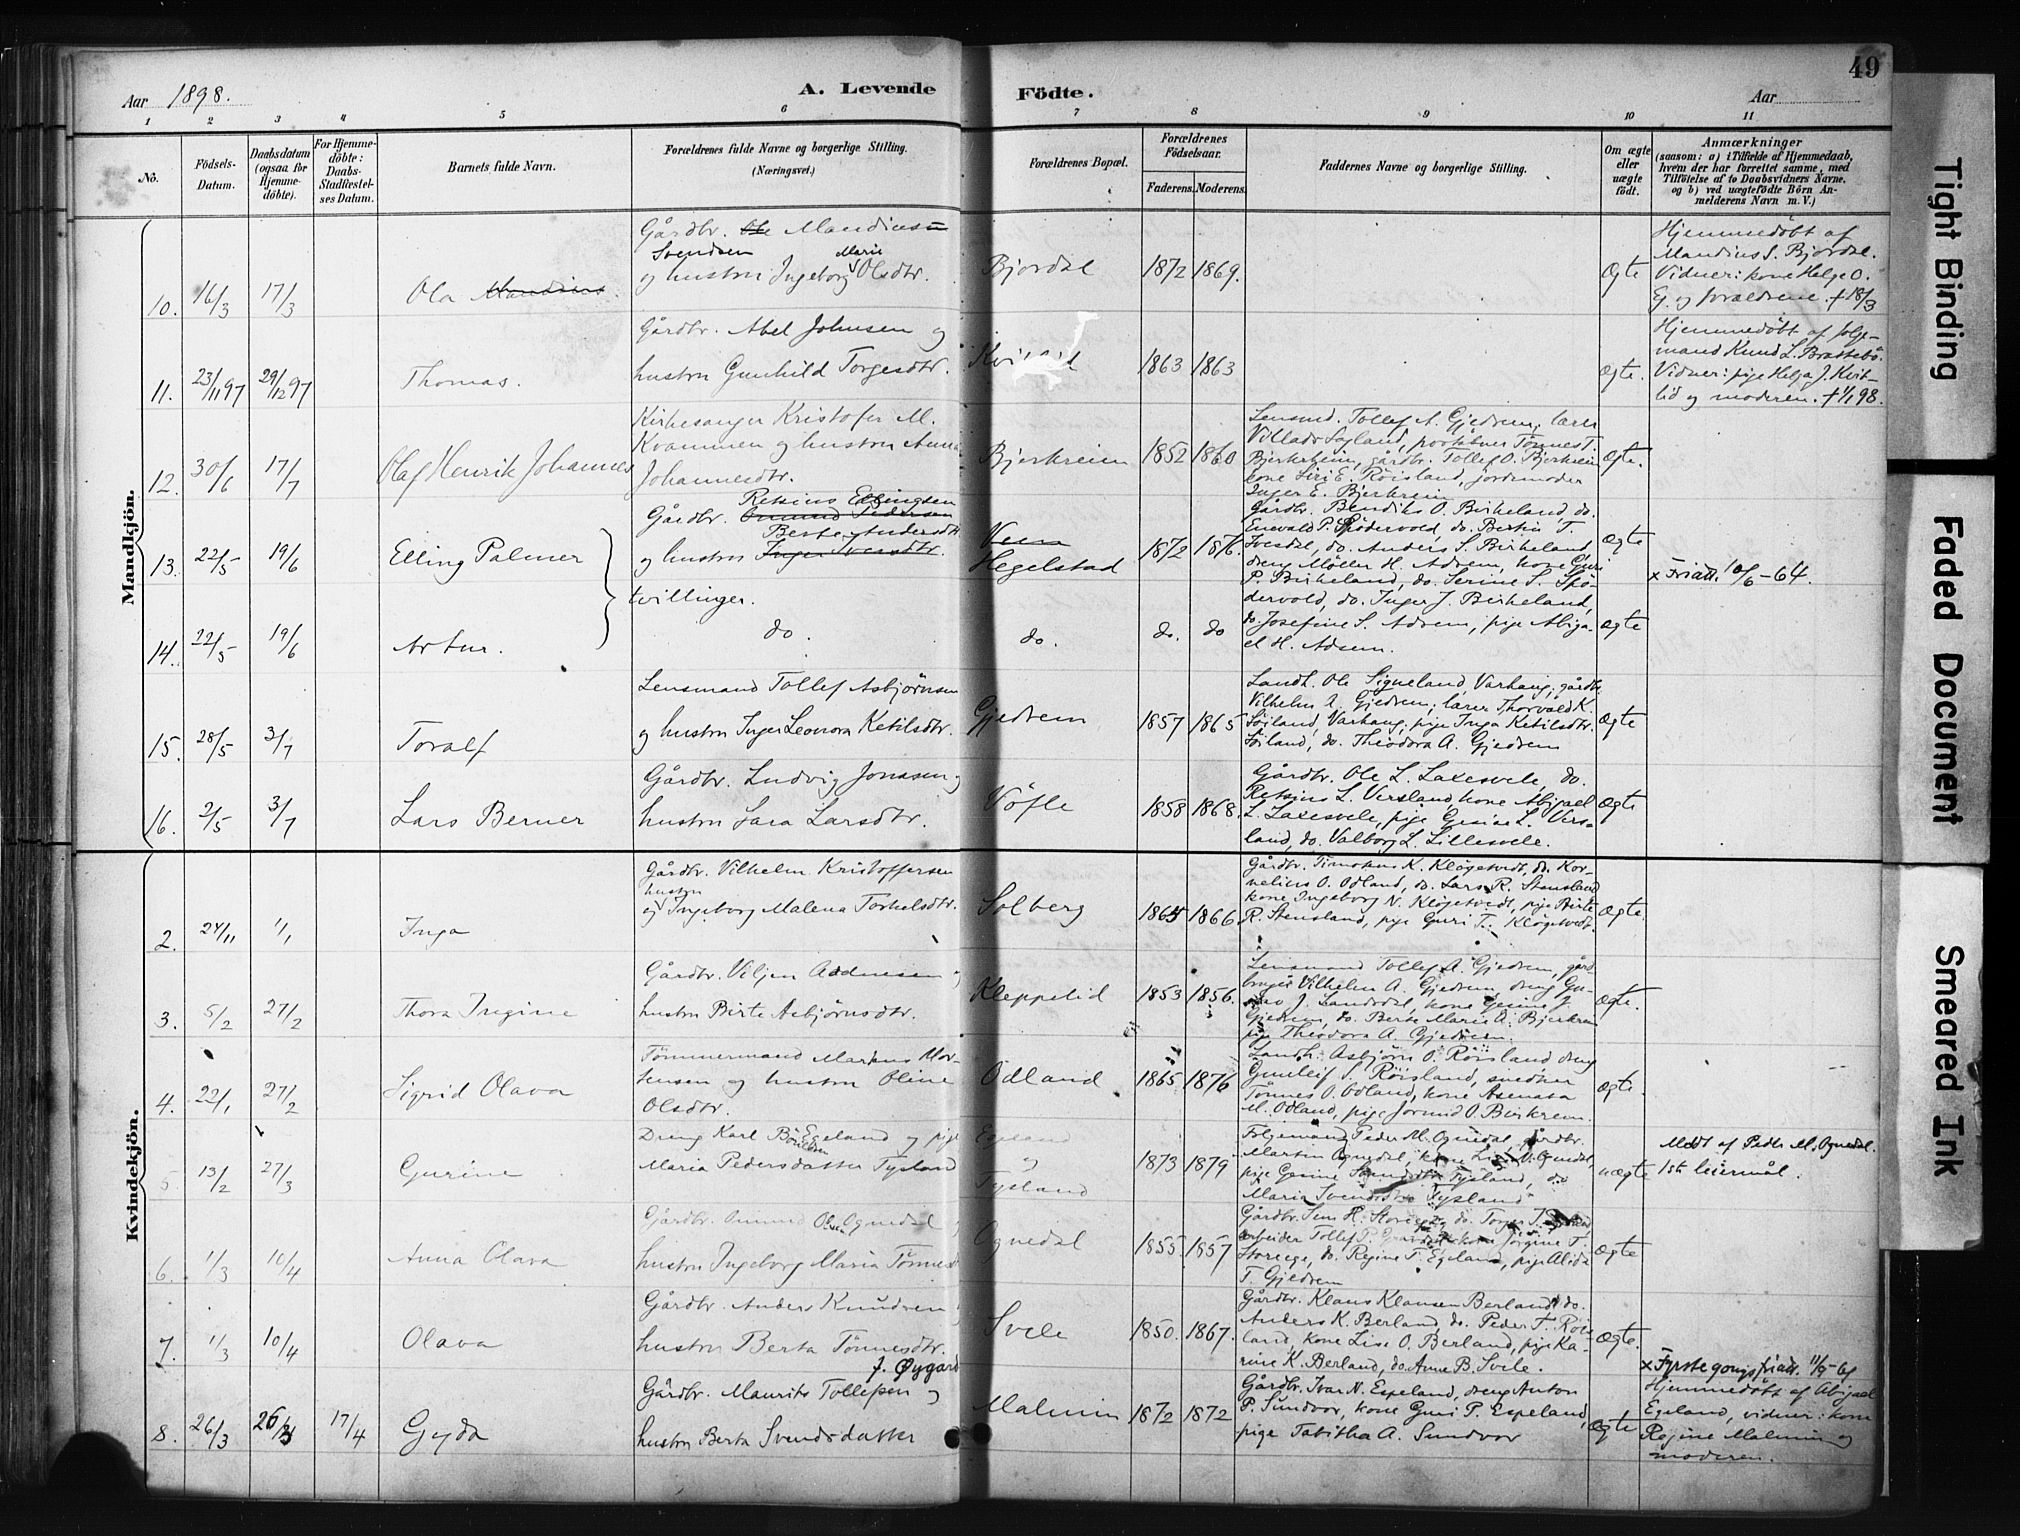 Aar 1898.
A. Levende Födte.
Aar
49
1 2 3 4 5 6 7 8 9 10 11
No.
Födsels-Datum.
Daabsdatum (ogsaa for Hjemme-döbte).
For Hjemme-döbte: Daabs-Stadfæstel-ses Datum.
Barnets fulde Navn.
Forældrenes fulde Navne og borgerlige Stilling.
(Næringsvei.)
Forældrenes Bopæl.
Forældrenes Födselsaar.
Faderens. Moderens.
Faddernes Navne og borgerlige Stilling.
Om ægte eller uægte födt.
Anmærkninger
(saasom: a) i Tilfælde af Hjemmedaab,
hvem der har forrettet samme, med
Tilföielse af to Daabsvidners Navne,
og b) ved uægtefödte Börn An-
melderens Navn m. V.)
Mandkjön.
10. 16/3 17/3 Ola Mandius.
Gårdbr. Ole Mandius
Svendsen Marie
og hustru Ingeborg Olsdtr.
Bjordal 1872 1869. Ægte
Hjemmedöbt af
Mandius S. Bjordal.
Vidner: kone Helge O.
Ej. og forældrene. † 18/3
11. 23/11 97 29/12 97 Thomas.
Gårdbr. Abel Johnsen og
hustru Gunhild Torgesdtr.
1863 1863 Ægte.
Hjemmedöbt af folge-
mand Knud L. Brattebö.
Vidner: pige Helga J. Kvit-
lid og moderen. † 1/1 98.
12. 30/6 17/7 Olaf Henrik Johannes
Kirkesanger Kristofer M.
Kvammen og hustru Anna
Johannesdtr.
Bjerkreim 1852 1860
Lensmd. Tollef A. Gjedrem, lærer
Villads Søyland, poståbner Tönnes T.
Bjerkreim, gårdbr. Tollef O. Bjerkreim
kone Siri E. Röisland, jordemoder
Inger E. Bjerkreim
Ægte.
13. 22/5 19/6 Elling Palmer
Retsius Ellingsen
Gårdbr. Omund Pedersen
Berte Andersdtr
og hustru Inger Iversdtr.
tvillinger.
Veen
Hegelstad 1872 1876.
Gårdbr. Bendiks O. Birkeland, do.
Enevald P. Spödervold, do. Bertin T.
Ivesdal, do. Anders S. Birkeland,
dreng Möller H. Adsem, kone Guri
P. Birkeland, do. Serine S. Spö-
dervold, do. Inger J. Birkeland,
do. Josefine S. Adsem, pige Abiga-
el H. Adsem.
Ægte
x Friatt. 10/6-64.
14. 22/5 19/6 Artur. do. do. do. do Ægte
15. 28/5 3/7 Toralf
Lensmand Tollef Asbjörnsen
og hustru Inger Leonora Ketilsdtr.
Gjedrem 1857 1865
Landh. Ole Signeland, Varhaug; gårdbr.
Vilhelm A. Gjedrem; lærer Thorvald K.
Söiland, Varhaug, pige Inga Ketilsdtr.
Söiland, do. Theodora A. Gjedrem
Ægte
16. 2/5 3/7 Lars Berner
Gårdbr. Ludvig Jonassen og
hustru Sara Larsdtr.
Vöfle 1858 1868.
Gårdbr. Ole L. Laxesvele, do.
Retsius L. Versland, kone Abigael
L. Laxesvele, pige Gesine L. Vers-
land, do. Valborg L. Lillesvele.
Ægte
Kvindekjön.
2. 24/11 1/1 Inga
Gårdbr. Vilhelm Kristoffersen
hustru
og Ingeborg Malena Torkelsdtr.
Solberg 1865 1866
Gårdbr. Timoteus K. Klögetvedt, do. Kor-
nelius O. Odland, do. Lars R. Stensland
kone Ingeborg N. Klögetvedt, pige Birte
R. Stensland, pige Guri T. Klögetvedt.
Ægte.
3. 5/2 27/2 Thora Ingine
Gårdbr. Viljen Aadnesen
hustru Birte Asbjörnsdtr.
Kleppelid 1853 1856.
Lensmand Tollef A. Gjedrem, gård-
bruger Vilhelm A. Gjedrem, dreng Gu-
stav J. Sandsdal, kone Gesine J.
Gjedrem, do. Berte Marie A. Bjerkreim
pige Theodora A. Gjedrem.
Ægte.
4. 22/1 27/2 Sigrid Olava
Tömmermand Markus Mor-
tensen og hustru Oline
Olsdtr.
Odland 1865 1876
Landh. Asbjörn O. Röisland, dreng
Gunleif S. Röisland, snedker
Tönnes O. Odland, kone Asenata
M. Odland, pige Jorund O. Birkrem.
Ægte.
5 13/2 27/3 Gurine
Dreng Karl Egeland og pige
Maria Pedersdatter Tysland
Egeland
og
Tysland 1873 1879
Följemand Peder M. Ognedal, gårdbr.
Martin Ognedal, kone Ognedal,
pige Gesine Tysland, do
Maria Tysland
uægte
Meldt af Peder M. Ognedal.
1ste leiermål.
6. 1/3 10/4 Anna Olava
Gårdbr. Omund Olsen Ognedal
hustru Ingeborg Maria Tönnesd
Ognedal 1855 1857
Gårdbr. Sem H. Storeege, do. Torger T.
arbeider Tollef P. kone Jörgine T.
Storeege, do. Regine T. Egeland, pige Alida
T. Gjedrem
Ægte
7. 1/3 10/4 Olava
Gårdbr. Anders Knudsen
hustru Berta Tönnesdtr.
f. Øygard
Svele 1850. 1867.
Gårdbr. Klaus Klausen Berland, do.
Anders K. Berland, do. Peder T. Röis-
land, kone Lise O. Berland, pige Ka-
rine K. Berland, do. Anne B. Svele.
Ægte.
8. 26/3 26/3 17/4 Gyda
Gårdbr. Maurits Tollefsen og
hustru Berta Svendsdatter
Malmin 1872 1872
Gårdbr. Ivar N. Espeland, dreng Anton
P. Sundvor, kone Guri P. Espeland,
pige Tabitha A. Sundvor
Ægte
x Fyrstegongsfriatt. 11/5-61
Hjemmedöbt af Abigael
Egeland, vidner: kone
Regine Malmin og
moderen.
Tight Binding
Faded Document
Smeared Ink